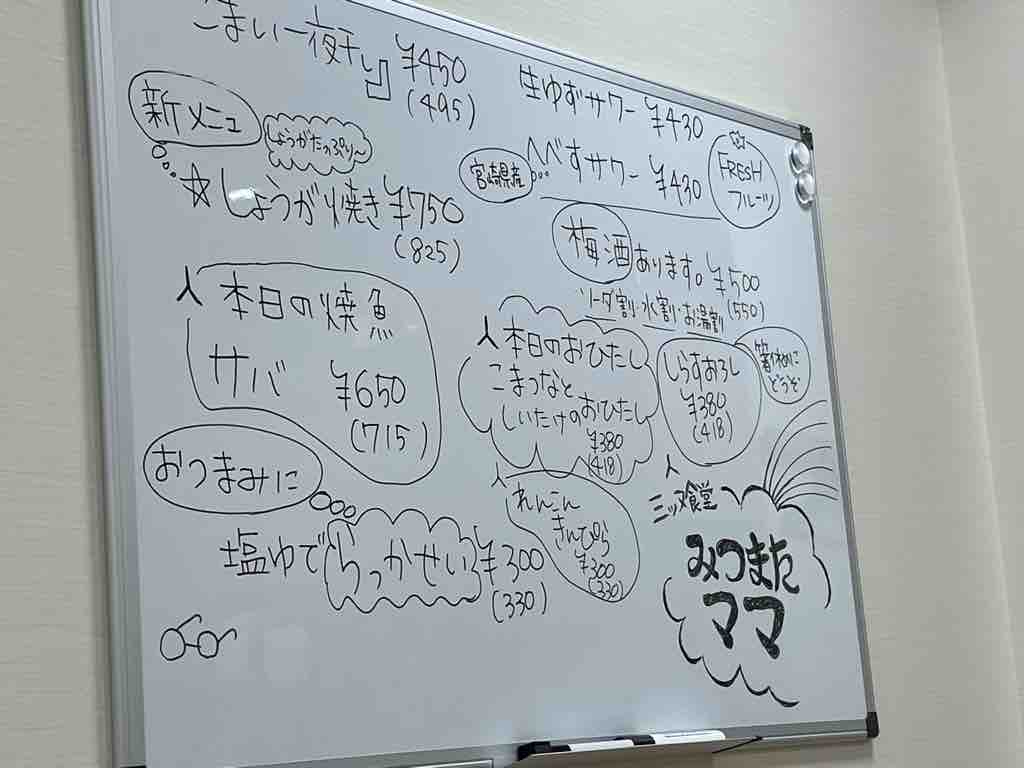 こまい一夜干し ¥450
(495)
新メニュー
しょうがたっぷり〜
☆しょうが焼き ¥750
(825)
本日の焼魚
サバ ¥650
(715)
おつまみに
塩ゆでらっかせい ¥300
(330)
生ゆずサワー ¥430
宮崎県産
へべすサワー ¥430
FRESH
フルーツ
梅酒あります。¥500
(550)
ソーダ割・水割・お湯割
本日のおひたし
こまつなと
しいたけのおひたし
¥380
(418)
しらすおろし
¥380
(418)
箸休めに
どうぞ
れんこん
きんぴら
¥300
(330)
三ツ又食堂
みつまた
ママ